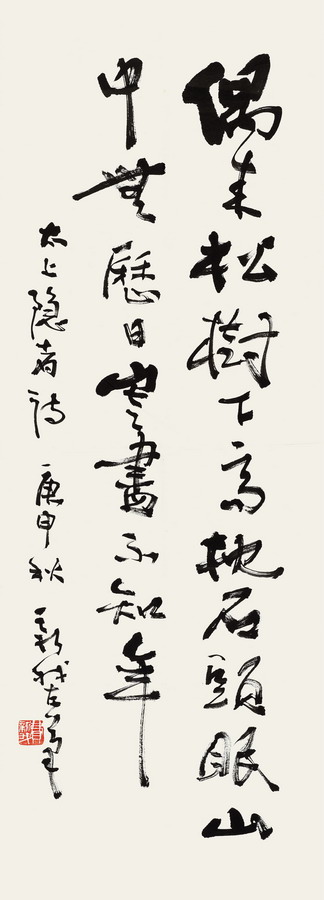 偶来松樹下高枕石頭眠山
中無歷日寒盡不知年
太上隐者詩 庚申秋 新我左筆